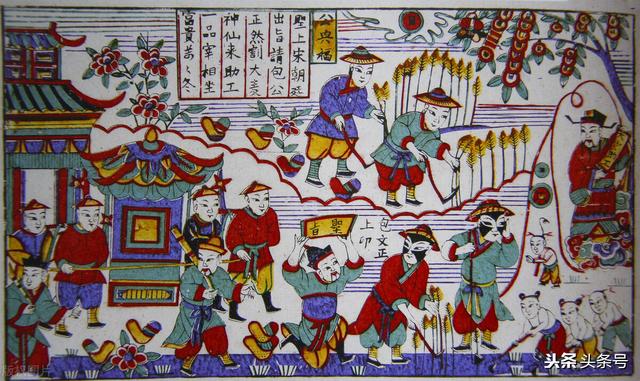 公興福
聖上宋朝廷
出旨請包公
正然割大麦
神仙来助工
一品宰相坐
富貴萬々冬
聖旨
包文正
上卬
头条 头条号